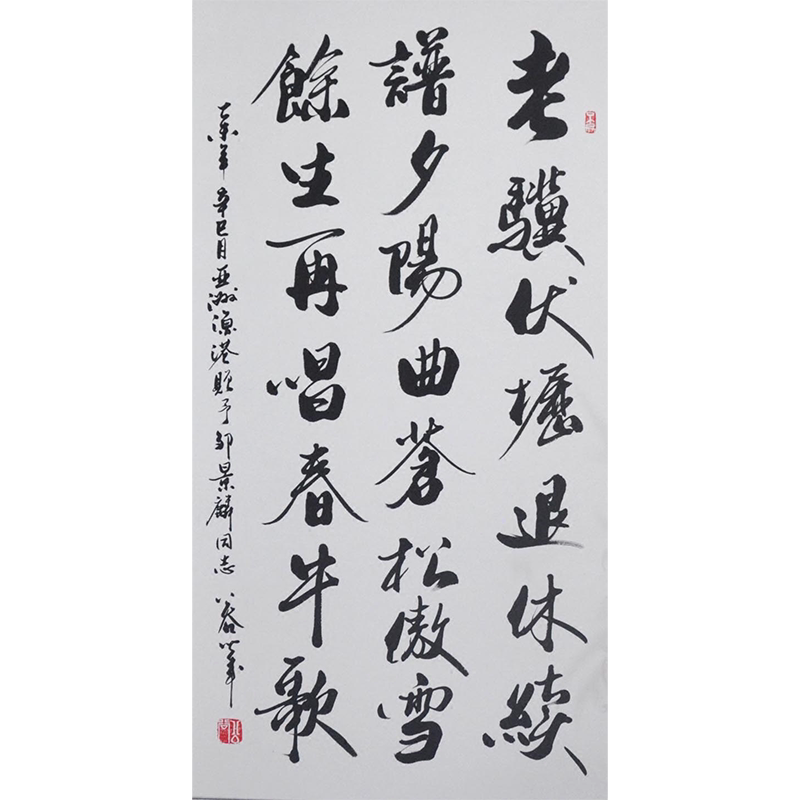 老驥伏櫪退休續
譜夕陽曲蒼松傲雪
餘生再唱春牛歌
辛巳月亞洲漁港贈予鄒景麟同志